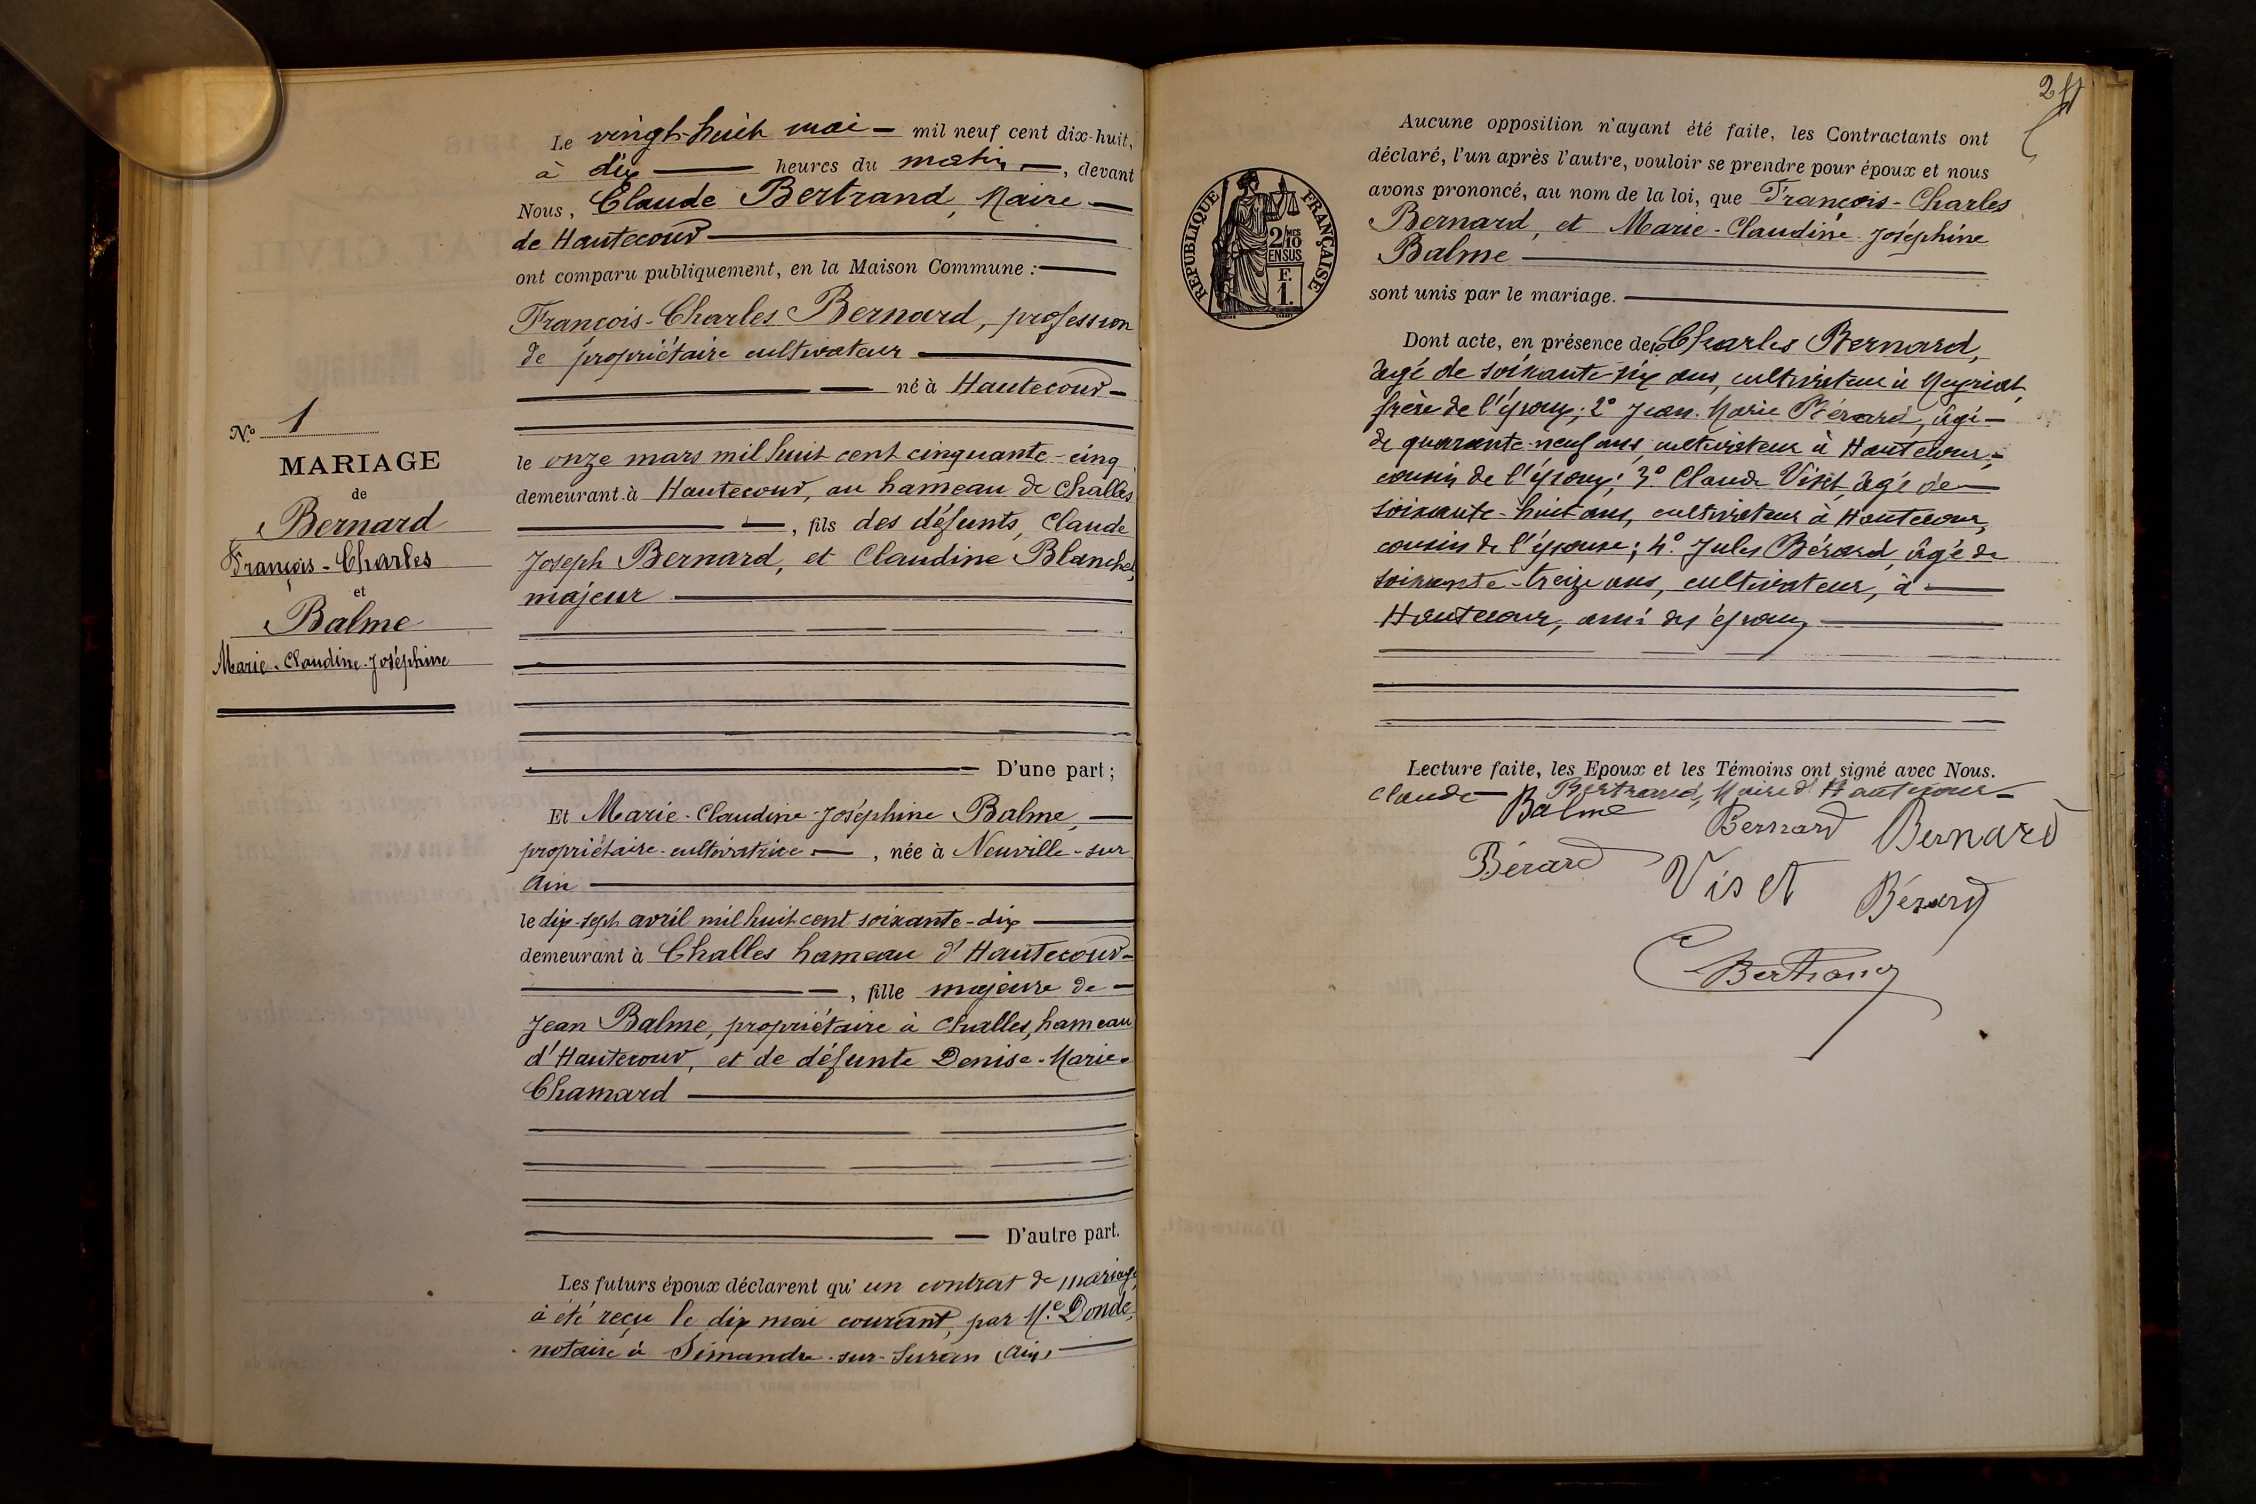 Le vingt-huit mai — mil neuf cent dix-huit,
à dix — heures du matin —, devant
Nous, Claude Bertrand, Maire —
de Hautecour —
ont comparu publiquement, en la Maison Commune : —
François-Charles Bernard, profession
de propriétaire cultivateur —
— né à Hautecour —
le onze mars mil huit cent cinquante-cinq
demeurant à Hautecour, au hameau de Challes
—, fils des défunts, Claude
Joseph Bernard, et Claudine Blanchet,
majeur —
D'une part ;
Nº 1
MARIAGE
de
Bernard
François-Charles
et
Balme
Marie-Claudine-Joséphine
Et Marie-Claudine-Joséphine Balme, —
propriétaire-cultivatrice —, née à Neuville-sur
Ain —
le dix-sept avril mil huit cent soixante-dix —
demeurant à Challes hameau d'Hautecour —
—, fille majeure de —
Jean Balme, propriétaire à Challes, hameau
d'Hautecour, et de défunte Denise-Marie-
Chamard —
— D'autre part.
Les futurs époux déclarent qu'un contrat de mariage
à été reçu le dix mai courant, par Me Dondé,
notaire à Simandre-sur-Suran (Ain) —
RÉPUBLIQUE FRANÇAISE
2/10 MES
EN SUS
F.
1.
Aucune opposition n'ayant été faite, les Contractants ont
déclaré, l'un après l'autre, vouloir se prendre pour époux et nous
avons prononcé, au nom de la loi, que François-Charles
Bernard, et Marie-Claudine-Joséphine
Balme —
sont unis par le mariage. —
Dont acte, en présence de 1º Charles Bernard,
âgé de soixante-six ans, cultivateur à Meyriat,
frère de l'époux; 2º Jean-Marie Bérard, âgé —
de quarante-neuf ans, cultivateur à Hautecour, —
cousin de l'époux; 3º Claude Viset, âgé de —
soixante-huit ans, cultivateur à Hautecour,
cousin de l'épouse; 4º Jules Bérard, âgé de
soixante-treize ans, cultivateur, à —
Hautecour, ami des époux —
Lecture faite, les Epoux et les Témoins ont signé avec Nous.
Claude Bertrand, Maire d'Hautecour —
Balme Bernard Bernard
Bérard Viset Bérard
C Bertrand